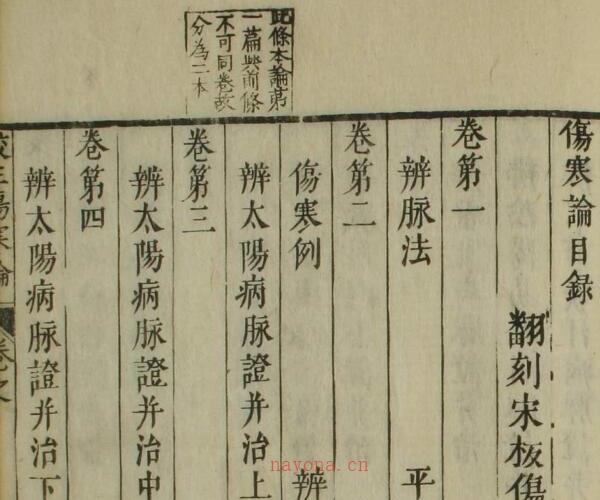 傷寒論目錄
翻刻宋板傷
卷第一
辨脉法 平
卷第二
傷寒例 辨
辨太陽病脉證并治上
卷第三
辨太陽病脉證并治中
卷第四
辨太陽病脉證并治下
此條本論第
一篇與前條
不可同卷故
分為二本
正傷寒論 卷之
nayona.cn